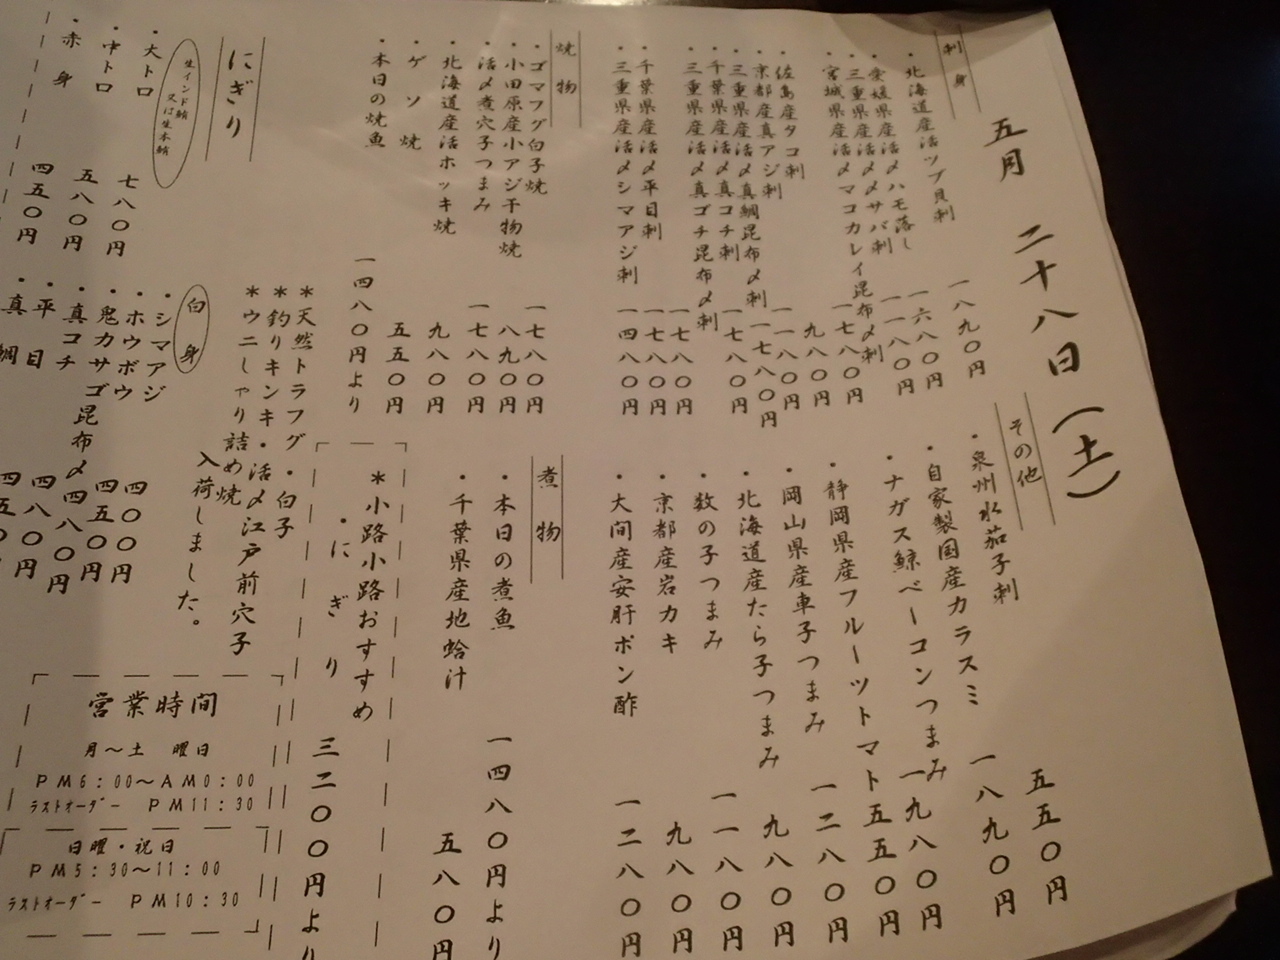 五月 二十八日（土）
刺身
・北海道産活ツブ貝刺 一八九〇円
・愛媛県産活〆ハモ落し 一六八〇円
・三重県産活〆〆サバ刺 一一八〇円
・宮城県産活〆マコカレイ昆布〆刺 一七八〇円
・佐島産タコ刺 九八〇円
・京都産真アジ刺 一一八〇円
・三重県産活〆真鯛昆布〆刺 一七八〇円
・千葉県産活〆真コチ刺 一七八〇円
・三重県産活〆真ゴチ昆布〆刺 一七八〇円
・千葉県産活〆平目刺 一七八〇円
・三重県産活〆シマアジ刺 一四八〇円
焼物
・ゴマフグ白子焼 一七八〇円
・小田原産小アジ干物焼 八九〇円
・活〆煮穴子つまみ 一七八〇円
・北海道産活ホッキ焼 九八〇円
・ゲソ焼 五五〇円
・本日の焼魚 一四八〇円より
その他
・泉州水茄子刺 五五〇円
・自家製国産カラスミ 一八九〇円
・ナガス鯨ベーコンつまみ 一九八〇円
・静岡県産フルーツトマト 五五〇円
・岡山県産車子つまみ 一二八〇円
・北海道産たら子つまみ 九八〇円
・数の子つまみ 一一八〇円
・京都産岩カキ 九八〇円
・大間産安肝ポン酢 一二八〇円
煮物
・本日の煮魚 一四八〇円より
・千葉県産地蛤汁 五八〇円
＊小路小路おすすめ
・にぎり 三二〇〇円より
＊天然トラフグ・白子
＊釣りキンキ・活〆江戸前穴子
＊ウニしゃり詰め焼
入荷しました。
にぎり
生インド鮪
又は生本鮪
・大トロ 七八〇円
・中トロ 五八〇円
・赤身 四五〇円
白身
・シマアジ 四〇〇円
・ホウボウ 四五〇円
・鬼カサゴ昆布〆 四八〇円
・真コチ 四八〇円
・平目 四五〇
真鯛
営業時間
月～土 曜日
PM6：00～AM0：00
ラストオーダー PM11：30
日曜・祝日
PM5：30～11：00
ラストオーダー PM10：30